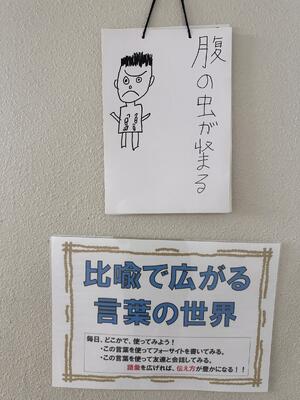 腹の虫が収まる
比喩で広がる
言葉の世界
毎日、どこかで、使ってみよう！
・この言葉を使ってフォーサイトを書いてみる。
・この言葉を使って友達と会話してみる。
語彙を広げれば、伝え方が豊かになる！！